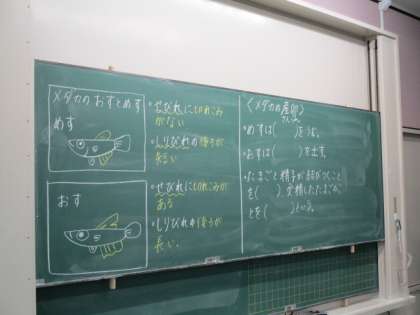 メダカのおすとめす
めす
・せびれに切れこみ
がない
・しりびれの後ろが
短い
おす
・せびれに切れこみが
ある
・しりびれの後ろが
長い.
〈メダカの産卵〉
さんらん
・めすは( )をうむ。
・おすは( )を出す。
・たまごと精子が結びつくこと
を( )、受精したたまごのこ
とを( )という。